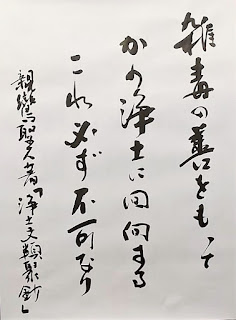 雑毒の善をもって
かの浄土に回向する
これ必ず不可なり
親鸞聖人著『浄土文類聚鈔』